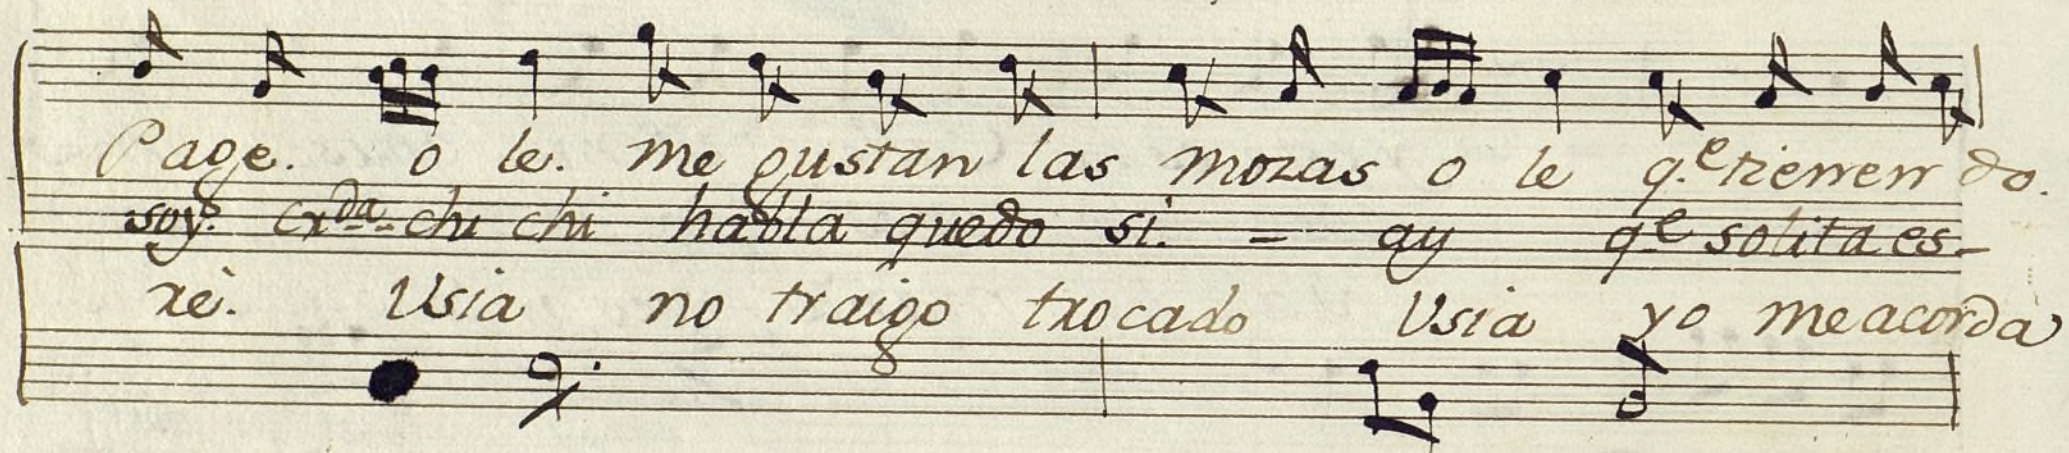 Page. o le. me gustan las mozas o le q.e tienen do.
soy. crda. chi chi habla quedo si. = ay qe solita es-
ré. Usia no traigo trocado Usia yo me acorda